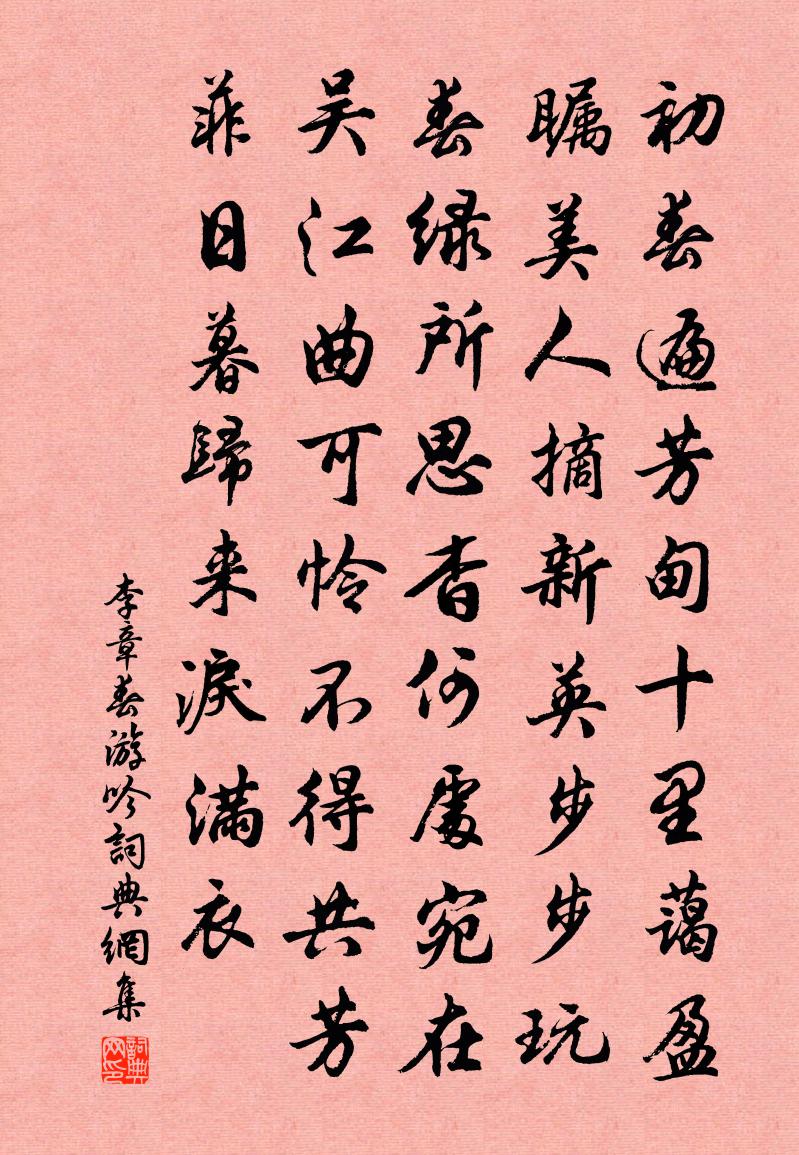 初春遍芳甸十里藹盈
矚美人摘新英步步玩
春绿所思杳何處宛在
吴江曲可怜不得共芳
菲日暮歸来淚滿衣
李章春游吟詞典網集
詞典網印